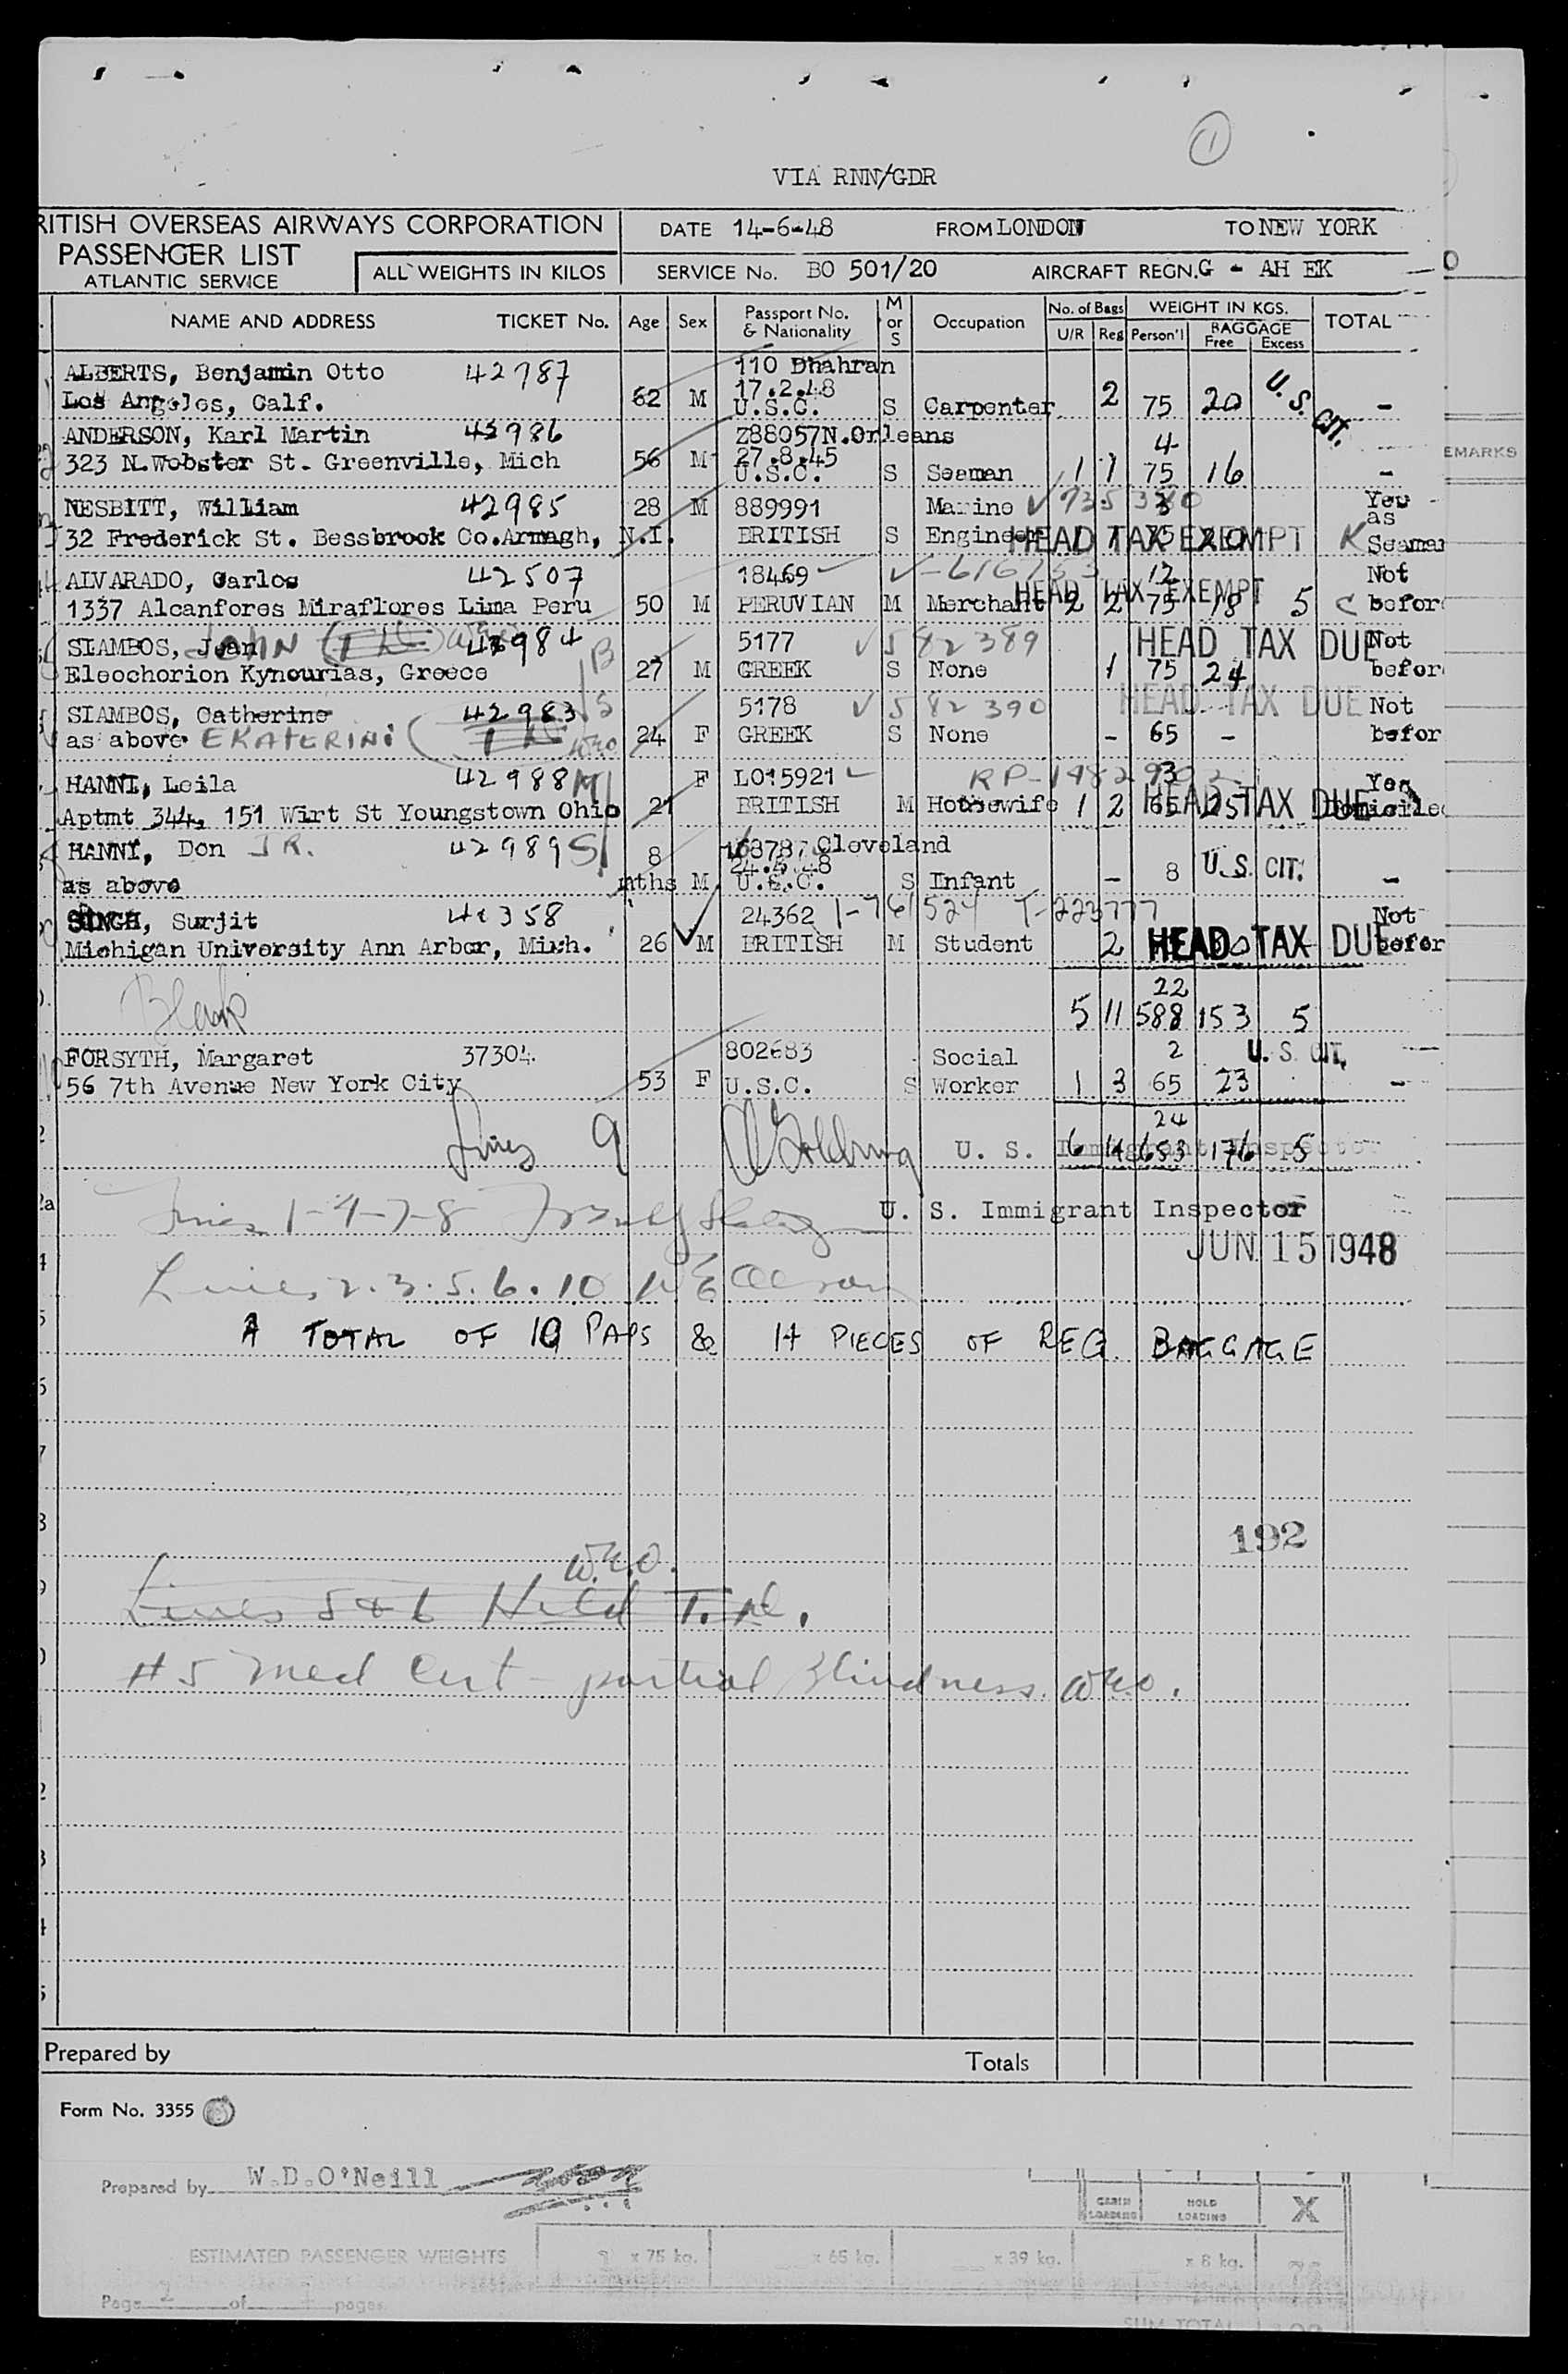 1
VIA RNN/GDR
RITISH OVERSEAS AIRWAYS CORPORATION
PASSENGER LIST
ATLANTIC SERVICE
ALL WEIGHTS IN KILOS
DATE 14-6-48 FROM LONDON TO NEW YORK
SERVICE No. BO 501/20 AIRCRAFT REGN. G - AH EK
NAME AND ADDRESS TICKET No. Age Sex Passport No. & Nationality M or S Occupation No. of Bags U/R Reg WEIGHT IN KGS. Person'l BAGGAGE Free Excess TOTAL
EMARKS
ALBERTS, Benjamin Otto 42987 110 Dhahran
Los Angeles, Calf. 62 M 17.2.48 U.S.C. S Carpenter 2 75 20 U.S. CIT. -
ANDERSON, Karl Martin 42986 Z88057 N.Orleans 4
323 N.Webster St. Greenville, Mich 56 M 27.8.45 U.S.C. S Seaman 1 1 75 16 -
NESBITT, William 42985 28 M 889991 Marine Yes as
32 Frederick St. Bessbrook Co.Armagh, N.I. BRITISH S Engineer HEAD TAX EXEMPT Seaman
ALVARADO, Carlos 42507 18469 12 Not
1337 Alcanfores Miraflores Lima Peru 50 M PERUVIAN M Merchant 2 2 75 18 5 HEAD TAX EXEMPT C before
SIAMBOS, Jean JOHN 42984 5177 582389 HEAD TAX DUE Not
Eleochorion Kynourias, Greece 27 M GREEK S None 1 75 24 befor
SIAMBOS, Catherine 42983 5178 582390 HEAD TAX DUE Not
as above EKATERINI 24 F GREEK S None - 65 - befor
HANNI, Leila 42988 F L015921 Yes
Aptmt 344, 151 Wirt St Youngstown Ohio 21 BRITISH M Housewife 1 2 65 25 HEAD TAX DUE Domiciled
HANNI, Don JR. 42989 8 Cleveland
as above mths M. U.S.C. S Infant - 8 U.S. CIT. -
SINGH, Surjit 24362 1-761524 T-223777 Not
Michigan University Ann Arbor, Mich. 26 M BRITISH M Student 2 HEAD TAX DUE befor
Blank 22
5 11 588 153 5
FORSYTH, Margaret 37304 802683 Social 2 U. S. CIT.
56 7th Avenue New York City 53 F U.S.C. S Worker 1 3 65 23 -
24
Lines 9 U. S. Immigrant Inspector 6 14 653 176 5
Lines 1-4-7-8 U. S. Immigrant Inspector
JUN 15 1948
Lines 2.3.5.6.10
A TOTAL OF 10 PAPS & 14 PIECES OF REG. BAGGAGE
192
W.R.O.
Lines 5 & 6 Held
#5 Med Cert - partial blindness
Prepared by Totals
Form No. 3355
Prepared by W.D.O'Neill
CABIN LOADING HOLD LOADING X
ESTIMATED PASSENGER WEIGHTS x 75 kg. x 65 kg. x 39 kg. x 8 kg.
Page 2 of pages
SUM TOTAL